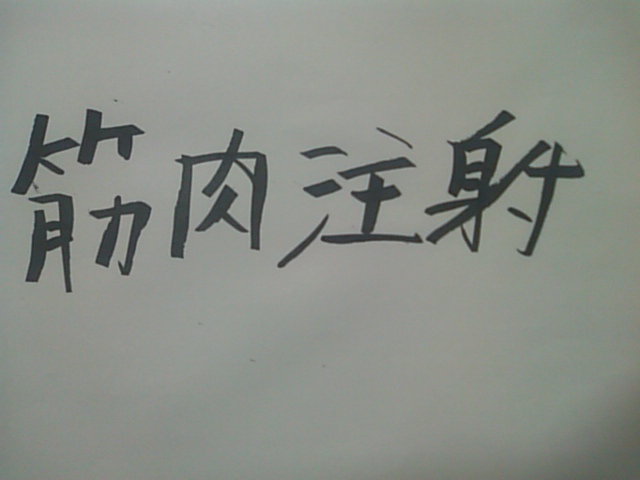 筋肉注射